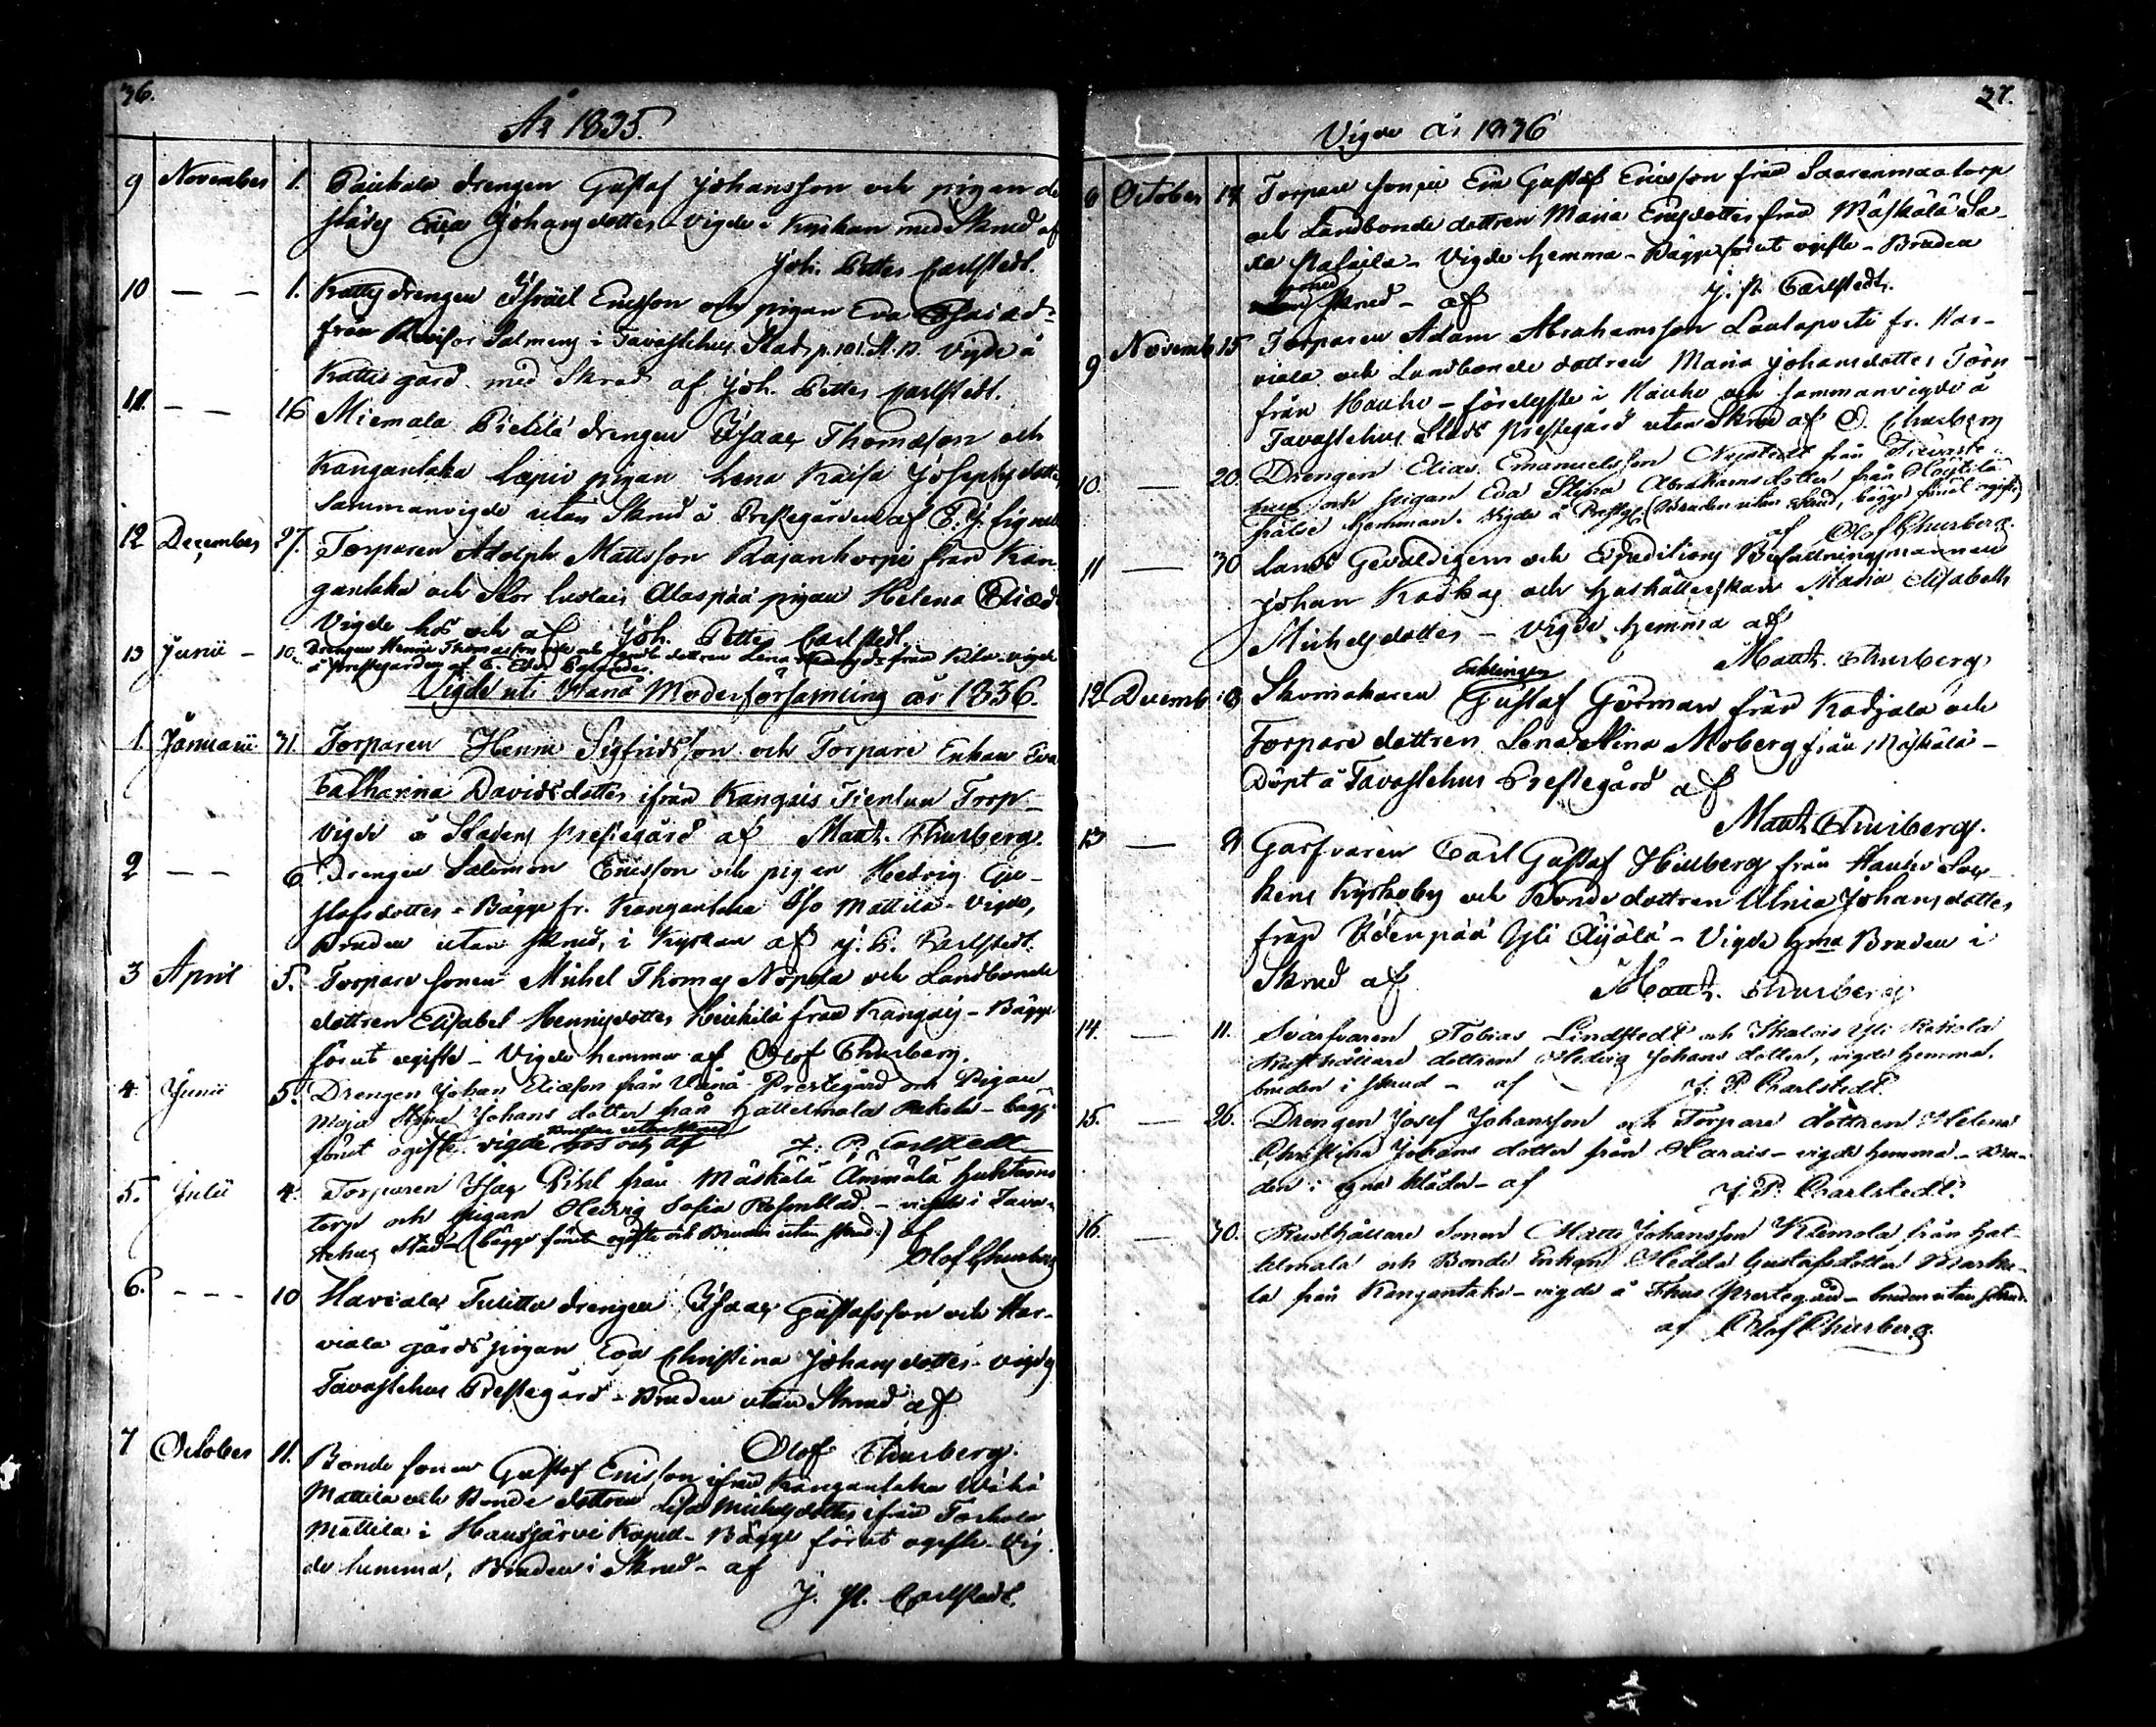 36.
År 1835.
9 November 1. Paukala drengen Gustaf Johansson och pigan
Johansdotter - Vigde i Kyrkan med Skrud af
Joh. Petter Carlstedt.
10 — — 1. Katty drengen Isräel Ericsson och pigan Eva
från Salmens i Tavastehus Stad Vigde å
Kattis gård med Skrud af Joh. Petter Carlstedt.
11. — — 16 Miemala Pietilä drengen Isaac Thomasson och
Kangantaka pigan Lena Kaisa Josephsdotter
Sammanvigde utan Skrud å Prestegården af
12 December 27. Torparen Adolph Mattsson Rajanhorpi från Kan-
gantaka och Stor Alaspää pigan Helena
Vigde hos och af Joh. Petter Carlstedt
13 Junii — 10. Drengen Henric Thomasson och dottren Lena från vigde
å Prestegården af
Vigde uti Wånå Moderförsamling år 1836.
1 Januarii 31 Torparen Henric Sigfridsson och Torpare Enkan Eva
Catharina Davidsdotter ifrån Kangais Torp -
Vigde å Stadens prestegård af Matth. Thurberg.
2 — — 6 Drengen Salomon Ericsson och pigan Hedvig Gu-
stafsdotter - Bägge fr. Kangantaka Iso Mattila - Vigde,
Bruden utan skrud, i Kyrkan af J. P. Carlstedt
3 April 5. Torpare sonen Michel Thomas Nopola och Landbonde
dottren Elisabet Henricsdotter Heikilä från Kangais - Bägge
förut ogifte - Vigde hemma af Olof Thurberg.
4. Junii 5. Drengen Johan Eliasson från Vånå Prestegård och Pigan
Maja Stina Johans dotter från Hattelmala Rekola - bägge
bruden utan skrud
förut ogifte. vigde hos och af J. P. Carlstedt
5. Julii 4. Torparen Isac Pihl från Mäskälä Ämmälä
torp och pigan Hedvig Sofia Rosenblad - vigde i Tava-
stehus stad - (bägge förut ogifte och Bruden utan skrud) af
Olof Thurberg
6. - - - 10 Harviala Tulitta drengen Isaac Gustafsson och Har-
viala gårds pigan Eva Christina Johansdotter - vigde
Tavastehus Prestegård - Bruden utan Skrud af
Olof Thurberg.
7 October 11. Bonde sonen Gustaf Ericsson ifrån Kangantaka Wähä
Mattila och Bonde dottren Lisa Michelsdotter ifrån
Mattila i Hausjärvi Kapell - Bägge förut ogifte - Vig-
de hemma, Bruden i Skrud - af
J. P. Carlstedt.
37.
Vigde år 1836
October 14 Torpare sonen Eric Gustaf Ericsson från Saarenmaa torp
och Landbonde dottren Maria Ericsdotter från Mäskälä
- Vigde hemma - Bägge förut ogifte - Bruden
skrud - af J. P. Carlstedt.
9 Novemb. 15 Torparen Adam Abrahamsson Laulaporti fr. Har-
viala och Landbonde dottren Maria Johansdotter Törn
från Hauho - förelyste i Hauho och sammanvigde å
Tavastehus Stads Prestegård utan Skrud af O. Thurberg
10. — 20. Drengen Elias Emanuelsson Nystedt från Tavaste-
hus och pigan Eva Stina Abrahamsdotter från
hemman. Vigde å Prestg. (Bruden utan skrud, bägge förut ogifte)
af Olof Thurberg.
11 — 30 Lands Gevaldigern och Expeditions Befallningsmannen
Johan och hushållerskan Maria Elisabeth
Michelsdotter - Vigde hemma af
Matth. Thurberg
12 Decemb. Skomakaren Enklingen Gustaf Görman från Kadjala och
Torpare dottren Lena Stina Moberg från Mäskälä -
Döpt å Tavastehus Prestegård af
Matth Thurberg.
13 — 8 Garfvaren Carl Gustaf från Hauho Soc-
kens Kyrkoby och Bonde dottren Ulrica Johansdotter
från Yli Äijälä - Vigde hma Bruden i
Skrud af Matth. Thurberg
14. — 11. Svarfvaren Tobias Lindstedt och Yli Rekola
Rusthållare dottren Hedvig Johans dotter, vigde hemma.
bruden i skrud - af J. P. Carlstedt.
15. — 26. Drengen Josef Johansson och Torpare dottren Helena
Christina Johans dotter från Harais - vigde hemma - Bru-
den i egna kläder - af J. P. Carlstedt.
16. — 30. Rusthållare Sonen Matts Johansson Klemola från Hat-
telmala och Bonde Enkan Hedda Gustafsdotter
från Kangantaka - vigde å Thus Prestegård - bruden utan skrud.
af Olof Thurberg.